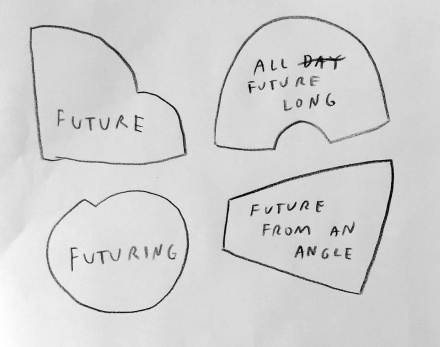 FUTURE
ALL DAY
FUTURE
LONG
FUTURING
FUTURE
FROM AN
ANGLE